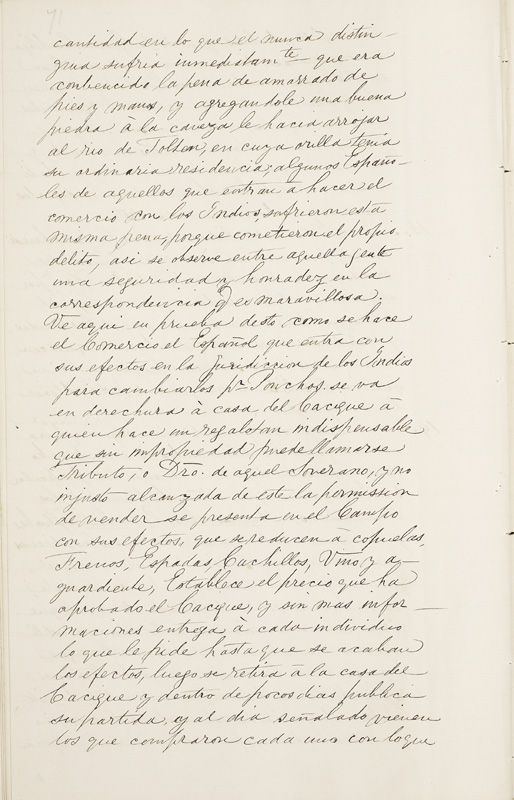 71
cantidad en lo que el nunca distin-
guia sufria inmediatamte - que era
conbencido la pena de amarrado de
pies y manos, y agregandole una buena
piedra à la caveza le hacia arrojar
al rio de Tolten, en cuya orilla tenia
su ordinaria residencia; algunos Españo-
les de aquellos que entran a hacer el
comercio con los Indios, sufrieron esta
misma pena, porque cometieron el propio
delito, asi se observe entre aquella gente
una seguridad y honradez en la
correspondencia q es maravillosa.
Ve aqui en prueba desto como se hace
el Comercio el Español que entra con
sus efectos en la Juridiccion de los Indios
para cambiarlos pr Ponchos. se va
en derechura à casa del Cacique à
quien hace un regalo tan indispensable
que sin impropiedad puede llamarse
Tributo, o Dro. de aquel Soverano, y no
injusto alcanzada de este la permission
de vender se presenta en el Campo
con sus efectos, que se reducen à
Frenos, Espadas Cuchillos, Vino, y a-
guardiente, Establece el precio que ha
aprobado el Cacique, y sin mas infor-
maciones entrega à cada individuo
lo que le pide hasta que se acaban
los efectos, luego se retira à la casa del
Cacique y dentro de pocos dias publica
su partida, y al dia señalado vienen
los que compraron cada uno con loque